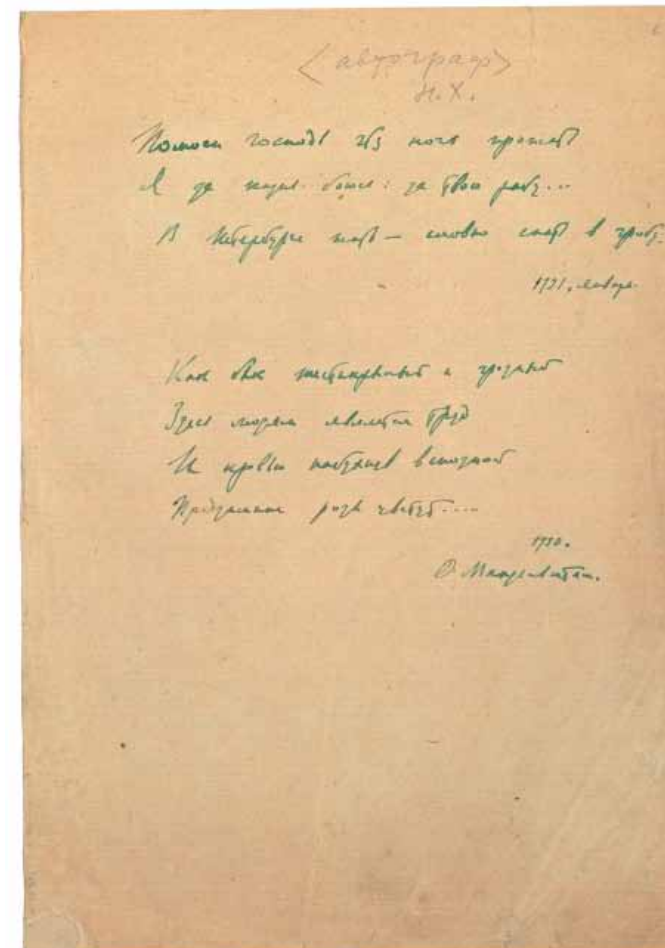 <автограф>
Н.Х.
Помоги господь эту ночь прожить
Я за жизнь боюсь: за твою рабу...
В Петербурге жить — словно спать в гробу.
1931. январь
Как бык шестикрылый и грозный
Здесь людям является труд
И кровью набухнув венозной
Предзимние розы цветут....
1930.
О. Мандельштам.